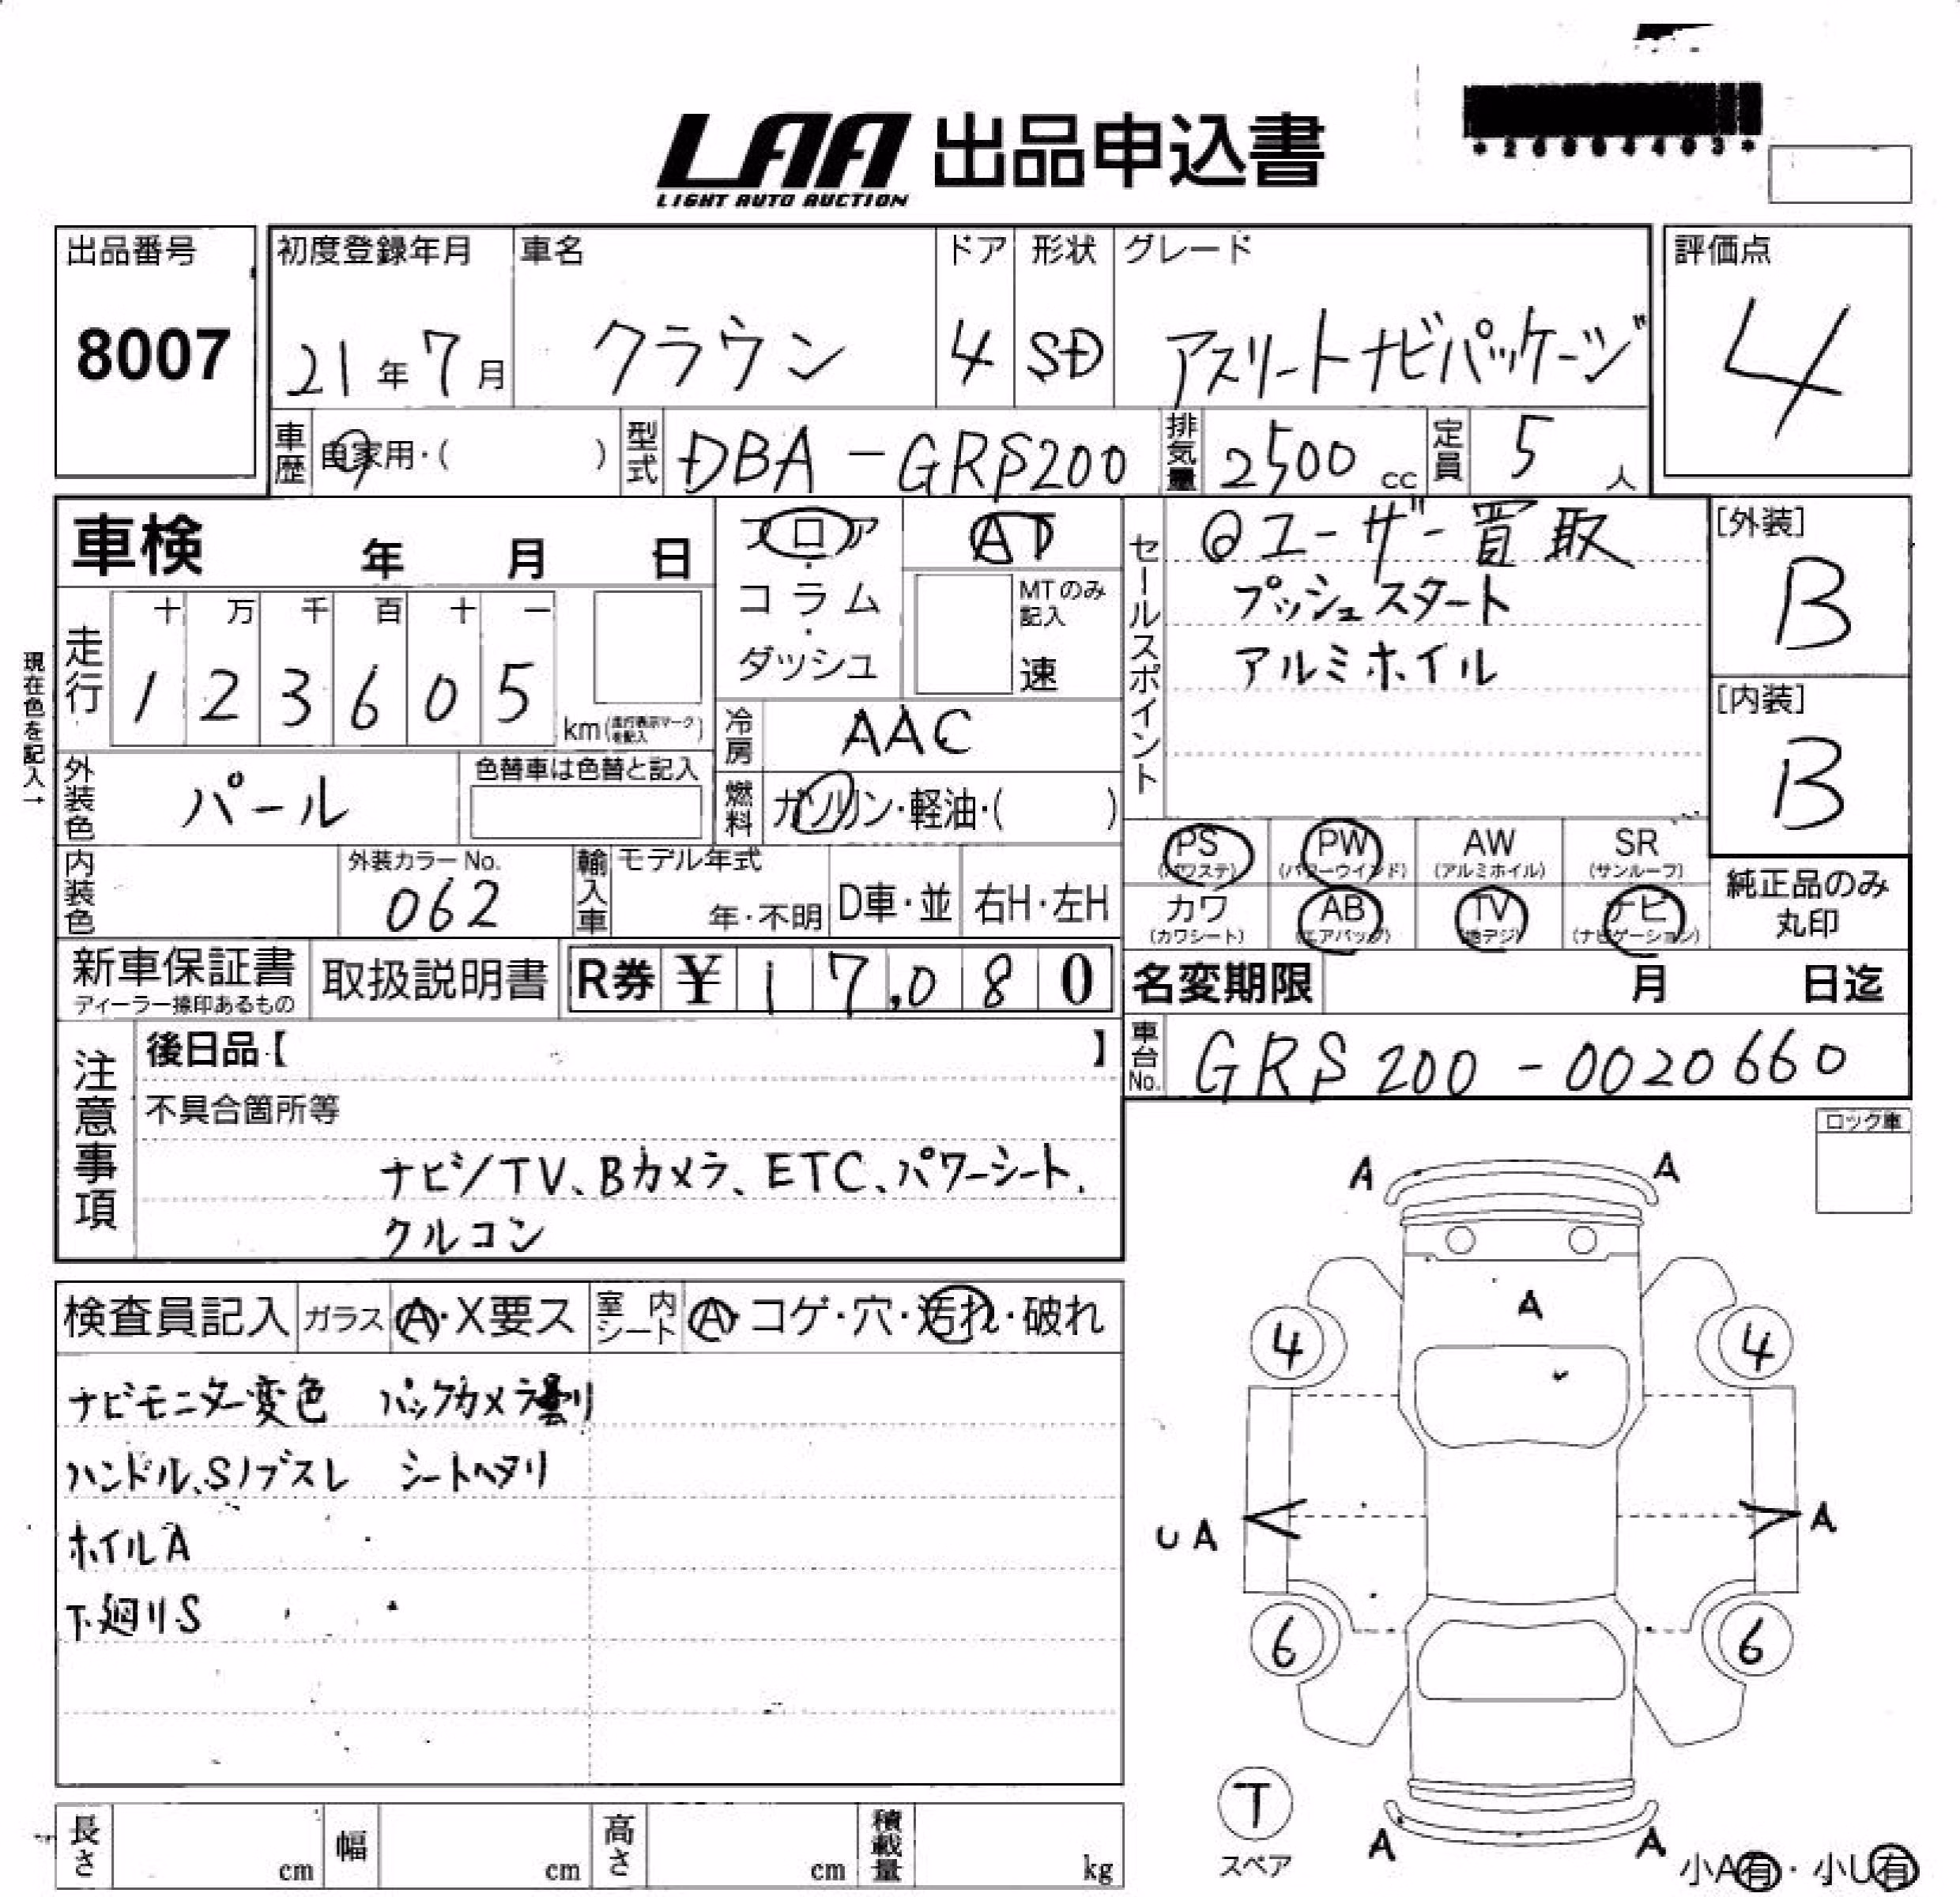 LAA 出品申込書
LIGHT AUTO AUCTION
*26004403*
出品番号
8007
初度登録年月
21年7月
車名
クラウン
ドア
4
形状
SD
グレード
アスリートナビパッケージ
評価点
4
車歴
自家用・( )
型式
DBA-GRS200
排気量
2500 cc
定員
5人
車検 年 月 日
フロア
・
コラム
・
ダッシュ
AT
MTのみ
記入
速
セールスポイント
@ユーザー買取
プッシュスタート
アルミホイル
[外装]
B
[内装]
B
現在色を記入→
走行
十 万 千 百 十 一
1 2 3 6 0 5
km(走行表示マークを記入)
冷房
AAC
外装色
パール
色替車は色替と記入
燃料
ガソリン・軽油・( )
PS
(パワステ)
PW
(パワーウインド)
AW
(アルミホイル)
SR
(サンルーフ)
カワ
(カワシート)
AB
(エアバッグ)
TV
(地デジ)
ナビ
(ナビゲーション)
純正品のみ
丸印
内装色
外装カラーNo.
062
輸入車
モデル年式
年・不明
D車・並
右H・左H
新車保証書
ディーラー捺印あるもの
取扱説明書
R券 ¥ 17,080
名変期限 月 日迄
車台No.
GRS200-0020660
注意事項
後日品【 】
不具合箇所等
ナビ/TV、Bカメラ、ETC、パワーシート、
クルコン
ロック車
検査員記入
ガラス
A・X要ス
室内シート
A・コゲ・穴・汚れ・破れ
ナビモニター変色 バックカメラ曇り
ハンドル、Sノブスレ シートヘタリ
ホイルA
下廻りS
A A
A
4 4
UA A
6 6
T
スペア
A A
小A有・小U有
長さ cm
幅 cm
高さ cm
積載量 kg